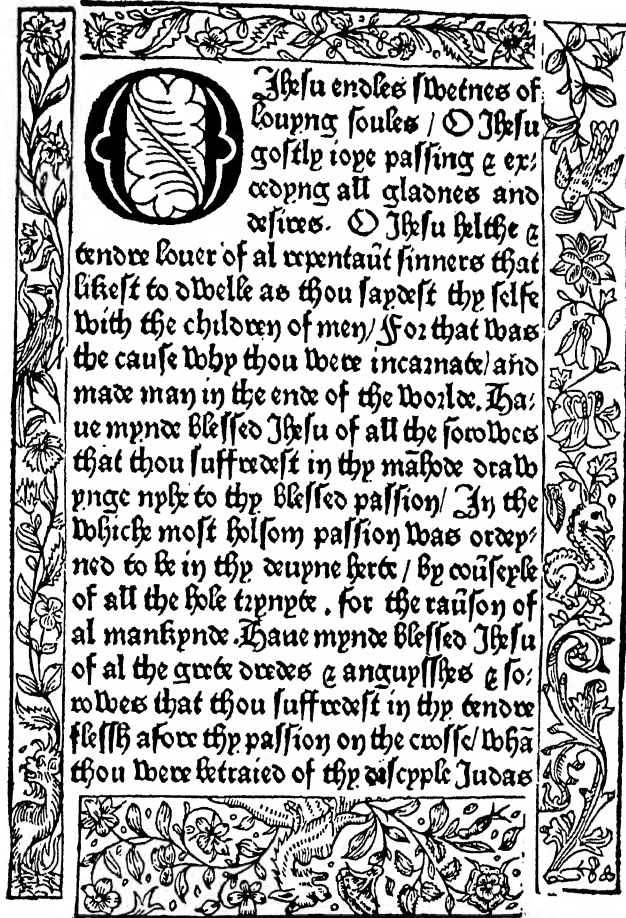 O Jhesu endles swetnes of
louyng soules / O Jhesu
gostly ioye passing & ex⸗
cedyng all gladnes and
desires. O Jhesu helthe &
tendre louer of al repentaūt sinners that
likest to dwelle as thou saydest thy selfe
with the children of men / For that was
the cause why thou were incarnate / and
made man in the ende of the worlde. Ha⸗
ue mynde blessed Jhesu of all the sorowes
that thou suffredest in thy māhode draw
ynge nyhe to thy blessed passion / In the
whiche most holsom passion was ordey⸗
ned to be in thy deuyne herte / by coūseyle
of all the hole trynyte . for the raūson of
al mankynde . Haue mynde blessed Jhesu
of al the grete dredes & anguysshes & so⸗
rowes that thou suffredest in thy tendre
flessh afore thy passion on the crosse / whā
thou were betraied of thy discyple Judas